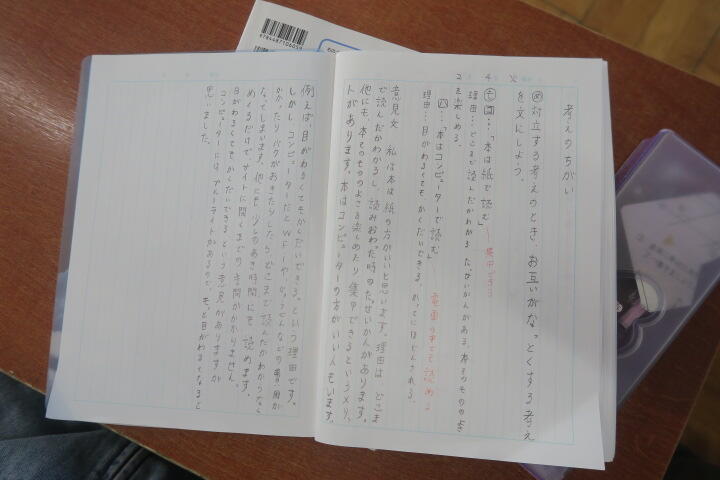 9784487106059
2 4 火
考えのちがい
め 対立する考えのとき、お互いがなっとくする考え
を文にしよう。
「本は紙で読む」
集中できる
理由…どこまで読んだかわかる たっせいかんがある。本そのもののよさ
を楽しめる。
…「本はコンピューターで読む」
電車の中でも読める
理由…目がわるくても かくだいできる。かってにほぞんされる。
意見文 私は本は紙の方がいいと思います。理由は、どこま
で読んだかわかるし、読みおわった時のたっせいかんがあります。
他にも、本そのもののよさを楽しめたり 集中できるというメリッ
トがあります。本はコンピューターの方がいい人もいます。
例えば、目がわるくてもかくだいできる。という理由です。
しかし コンピューターだとWiFiや じゅうでんなどの費用が
かかったり バグがおきたりしたら、どこまで読んだかわからなく
なってしまいます。他にも 少しのあき時間にも読めます。
めくるだけで、サイトに開くまでの時間がかかりません。
目がわるくても、かくだいできるという意見がありますが
コンピューターには、ブルーライトがあるので、もっと目がわるくなると
思いました。